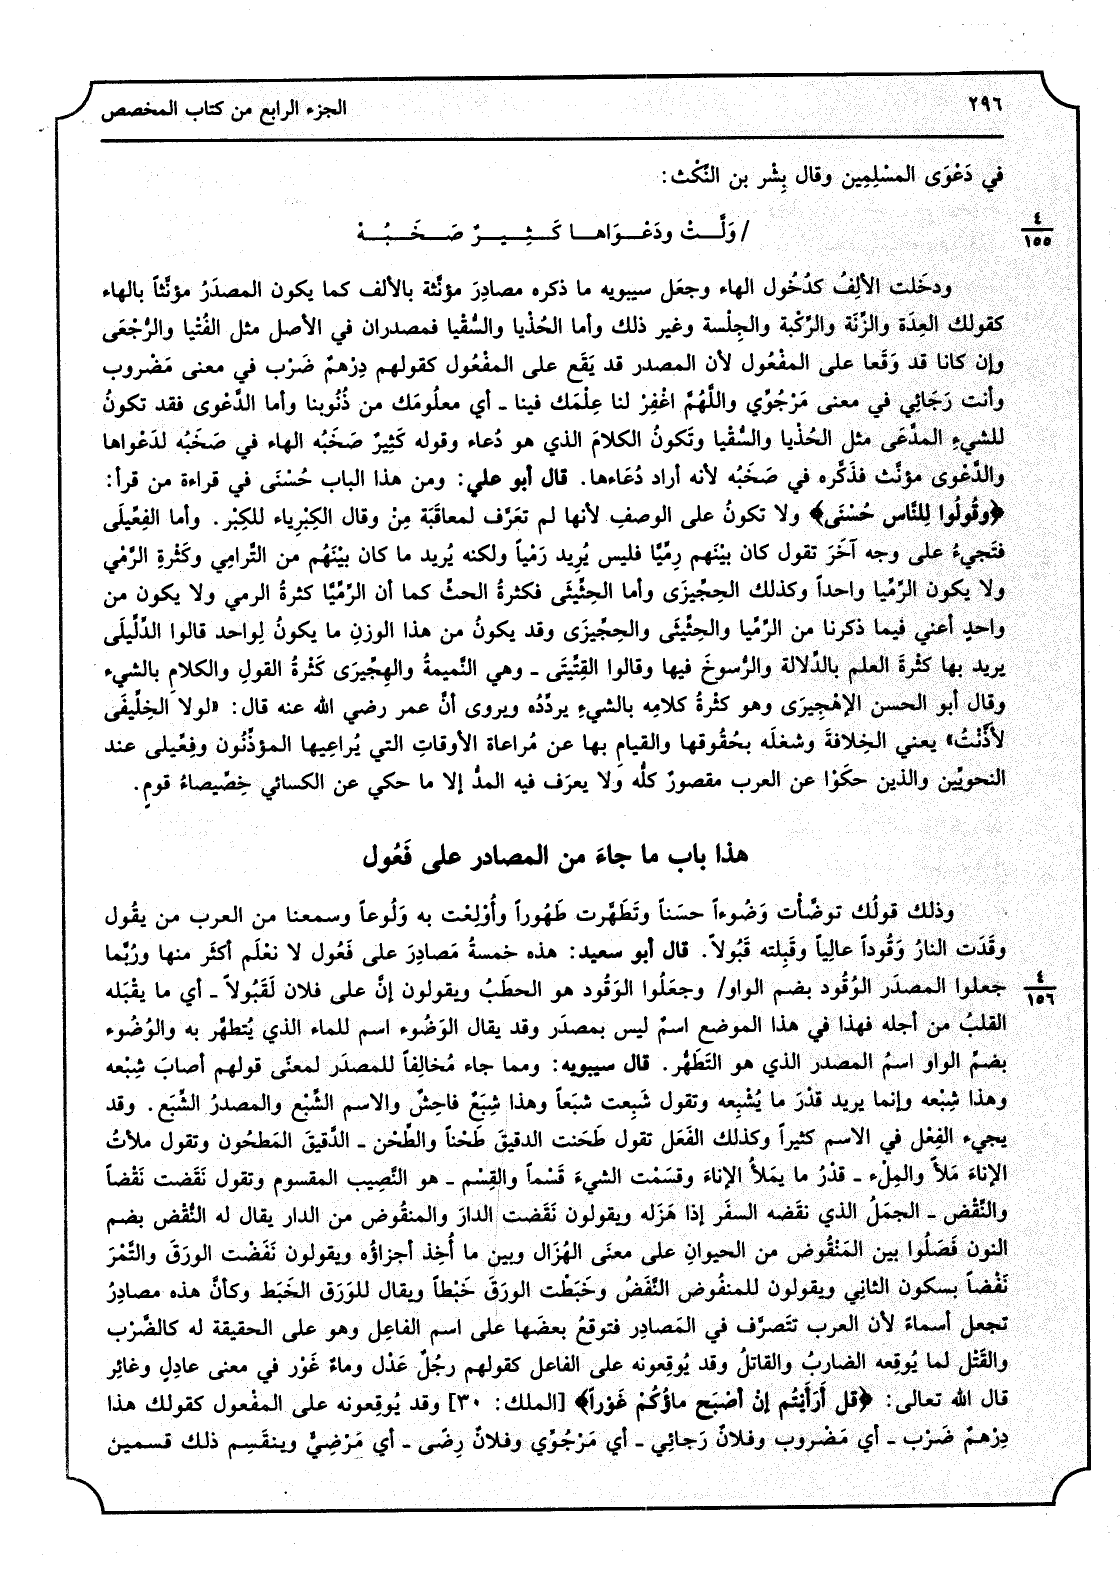 ٢٩٦
الجزء الرابع من كتاب المخصص
في دَعْوَى المسْلِمِين وقال بِشْر بن النَّكْث:
/ وَلَّتْ ودَعْوَاها كَثِيرٌ صَخَبُهْ
٤
١٥٥
ودخَلت الألِفُ كدُخُول الهاء وجعَل سيبويه ما ذكره مصادِرَ مؤنَّثة بالألف كما يكون المصدَرُ مؤنَّثاً بالهاء
كقولك العِدَة والزِّنَة والرِّكْبة والجِلْسة وغير ذلك وأما الحُذْيا والسُّقْيا فمصدران في الأصل مثل الفُتْيا والرُّجْعَى
وإن كانا قد وَقَعا على المفْعُول لأن المصدر قد يَقَع على المفْعُول كقولهم دِرْهمٌ ضَرْب في معنى مَضْروب
وأنت رَجَائِي في معنى مَرْجُوِّي واللَّهُمَّ اغْفِرْ لنا عِلْمَك فينا ـ أي معلُومَك من ذُنُوبنا وأما الدَّعْوى فقد تكونُ
للشيءِ المدَّعَى مثل الحُذْيا والسُّقْيا وتَكونُ الكلامَ الذي هو دُعاء وقوله كَثِيرٌ صَخَبُه الهاء في صَخَبُه لدَعْواها
والدَّعْوى مؤنَّث فذَكَّره في صَخَبُه لأنه أراد دُعَاءها. قال أبو علي: ومن هذا الباب حُسْنَى في قراءة من قرأ:
﴿وقُولُوا لِلنَّاس حُسْنَى﴾ ولا تكونُ على الوصفِ لأنها لم تعَرَّف لمعاقَبة مِنْ وقال الكِبْرِياء للكِبْر. وأما الفِعِّيلَى
فتَجيءُ على وجه آخَرَ تقول كان بيْنَهم رِمِّيًّا فليس يُرِيد رَمْياً ولكنه يُريد ما كان بيْنَهُم من التَّرامِي وكَثْرةِ الرَّمْي
ولا يكون الرِّمِّيا واحداً وكذلك الحِجِّيزَى وأما الحِثِّيثَى فكثرةُ الحثِّ كما أن الرِّمِّيَّا كثرةُ الرمي ولا يكون من
واحدٍ أعني فيما ذكرنا من الرِّمِّيا والحِثِّيثَى والحِجِّيزَى وقد يكونُ من هذا الوزنِ ما يكونُ لِواحد قالوا الدِّلِّيلَى
يريد بها كثْرةَ العلم بالدِّلالة والرُّسوخَ فيها وقالوا القِتِّيتَى ـ وهي النَّميمةُ والهِجِّيرَى كَثْرةُ القولِ والكلامِ بالشيء
وقال أبو الحسن الإهْجِيرَى وهو كثرةُ كلامِه بالشيءِ يردِّدُه ويروى أنَّ عمر رضي الله عنه قال: «لولا الخِلِّيفَى
لأذَّنْتُ» يعني الخِلافةَ وشغلَه بحُقوقها والقيامِ بها عن مُراعاة الأوقاتِ التي يُراعِيها المؤذِّنُون وفِعِّيلى عند
النحويِّين والذين حكَوْا عن العرب مقصورٌ كلُّه ولا يعرَف فيه المدُّ إلا ما حكي عن الكسائي خِصِّيصاءُ قومٍ.
هذا باب ما جاءَ من المصادر على فَعُول
وذلك قولُك توضَّأْت وَضُوءاً حسَناً وتَطَهَّرت طَهُوراً وأُوْلِعْت به وَلُوعاً وسمعنا من العرب من يقُول
وقَدَت النارُ وَقُوداً عالِياً وقَبِلته قَبُولاً. قال أبو سعيد: هذه خمسةُ مَصادِرَ على فَعُول لا نعْلَم أكثَر منها ورُبَّما
جعلوا المصدَر الوُقُود بضم الواو/ وجعَلُوا الوَقُود هو الحطَبُ ويقولون إنَّ على فلان لَقَبُولاً ـ أي ما يقْبَله
٤
١٥٦
القلبُ من أجله فهذا في هذا الموضع اسمٌ ليس بمصدَر وقد يقال الوَضُوء اسم للماء الذي يُتطهَّر به والوُضُوء
بضمِّ الواو اسمُ المصدر الذي هو التَطَهُّر. قال سيبويه: ومما جاء مُخالِفاً للمصدَر لمعنَى قولهم أصابَ شِبْعه
وهذا شِبْعه وإنما يريد قدْرَ ما يُشْبِعه وتقول شَبِعت شبَعاً وهذا شِبَعٌ فاحِشٌ والاسم الشَّبْع والمصدرُ الشَّبَع. وقد
يجيء الفِعْل في الاسم كثيراً وكذلك الفَعَل تقول طَحَنت الدقيقَ طَحْناً والطِّحْن ـ الدَّقيقَ المَطحُون وتقول ملأتُ
الإناءَ مَلأً والمِلْء ـ قدْرُ ما يمَلأُ الإناءَ وقسَمْت الشيءَ قَسْماً والقِسْم ـ هو النَّصِيب المقسوم وتقول نَقَضت نَقْضاً
والنَّقْض ـ الجمَلُ الذي نقَضه السفَر إذا هَزَله ويقولون نَقَضت الدارَ والمنقُوض من الدار يقال له النُّقْض بضم
النون فَصَلُوا بين المَنْقُوض من الحيوانِ على معنَى الهُزَال وبين ما أُخِذ أجزاؤُه ويقولون نَفَضْت الورَقَ والتَّمْرَ
نَفْضاً بسكون الثانِي ويقولون للمنفُوض النَّفَضُ وخَبَطْت الورَقَ خَبْطاً ويقال للوَرَق الخَبَط وكأنَّ هذه مصادِرُ
تجعل أسماءَ لأن العرب تتَصرَّف في المَصادِر فتوقعُ بعضَها على اسم الفاعِل وهو على الحقيقة له كالضَّرْب
والقَتْل لما يُوقِعه الضارِبُ والقاتلُ وقد يُوقِعونه على الفاعل كقولهم رجُلٌ عَدْل وماءٌ غَوْر في معنى عادِلٍ وغائِر
قال الله تعالى: ﴿قل أَرَأَيْتُم إنْ أصْبَح ماؤُكُمْ غَوْراً﴾ [الملك: ٣٠] وقد يُوقِعونه على المفْعول كقولك هذا
دِرْهمٌ ضَرْب ـ أي مَضْروب وفلانٌ رَجائِي ـ أي مَرْجُوِّي وفلانٌ رِضَى ـ أي مَرْضِيٌّ وينقَسِم ذلك قسمين